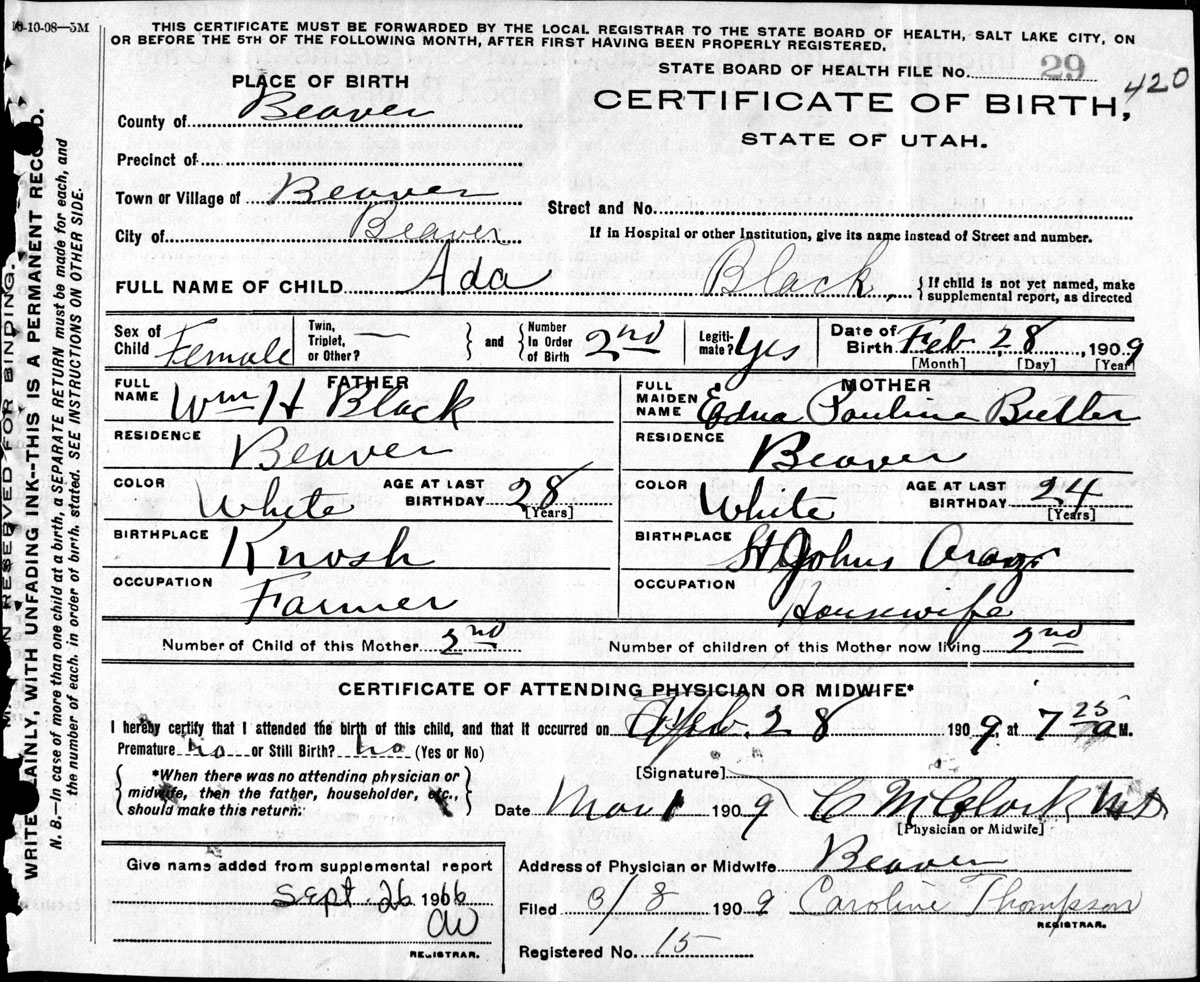 10-10-08—5M
THIS CERTIFICATE MUST BE FORWARDED BY THE LOCAL REGISTRAR TO THE STATE BOARD OF HEALTH, SALT LAKE CITY, ON
OR BEFORE THE 5TH OF THE FOLLOWING MONTH, AFTER FIRST HAVING BEEN PROPERLY REGISTERED.
STATE BOARD OF HEALTH FILE No. 29
420
CERTIFICATE OF BIRTH,
STATE OF UTAH.
PLACE OF BIRTH
County of Beaver
Precinct of
Town or Village of Beaver
Street and No.
City of Beaver
If in Hospital or other Institution, give its name instead of Street and number.
FULL NAME OF CHILD Ada Black, { If child is not yet named, make supplemental report, as directed
Sex of Child Female
Twin, Triplet, or Other? —
and { Number in Order of Birth 2nd
Legiti-mate? Yes
Date of Birth Feb, 28, 1909
[Month] [Day] [Year]
FATHER
FULL NAME Wm H Black
RESIDENCE Beaver
COLOR White AGE AT LAST BIRTHDAY 28 [Years]
BIRTHPLACE Knosh
OCCUPATION Farmer
MOTHER
FULL MAIDEN NAME Edna Pauline Butler
RESIDENCE Beaver
COLOR White AGE AT LAST BIRTHDAY 24 [Years]
BIRTHPLACE St Johns
OCCUPATION Housewife
Number of Child of this Mother 2nd Number of children of this Mother now living 2nd
CERTIFICATE OF ATTENDING PHYSICIAN OR MIDWIFE*
I hereby certify that I attended the birth of this child, and that it occurred on Feb. 28 1909, at 7 25 a M.
Premature no or Still Birth? no (Yes or No)
{ *When there was no attending physician or midwife, then the father, householder, etc., should make this return. }
[Signature]
Date Mar 1 1909 C M Clark MD
[Physician or Midwife]
Give name added from supplemental report
Sept. 26 1916
CW
REGISTRAR.
Address of Physician or Midwife Beaver
Filed 3/8 1909 Caroline Thompson
REGISTRAR.
Registered No. 15
RESERVED FOR BINDING.
WRITE PLAINLY, WITH UNFADING INK--THIS IS A PERMANENT RECORD.
N. B.—In case of more than one child at a birth, a SEPARATE RETURN must be made for each, and
the number of each, in order of birth, stated. SEE INSTRUCTIONS ON OTHER SIDE.